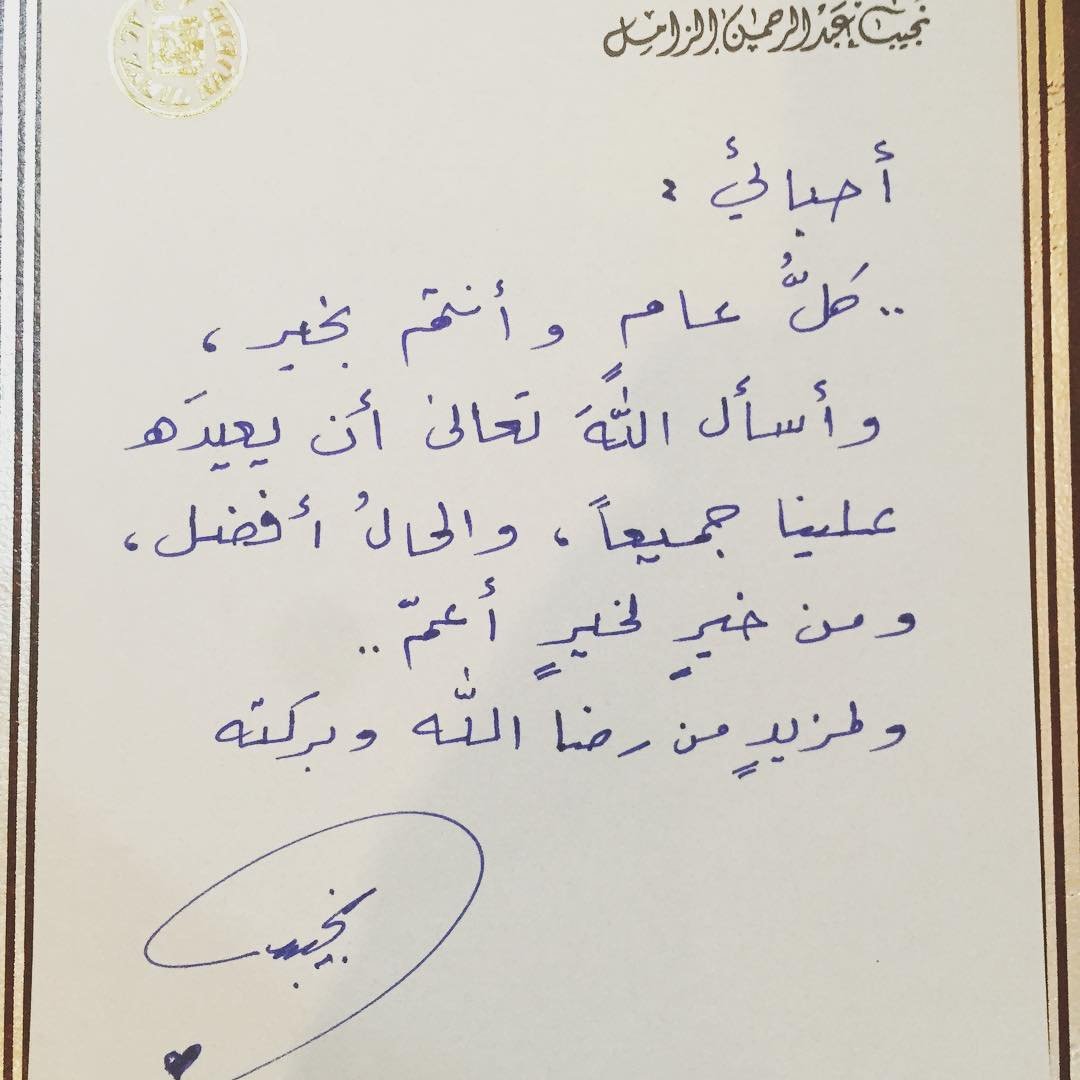 نجيب عبد الرحمن الزامل
أحبائيْ :
.. كلُّ عامٍ وأنتم بخير ،
وأسأل اللهَ تعالى أن يعيدَه
علينا جميعاً ، والحالُ أفضل ،
ومن خيرٍ لخيرٍ أعمّ ..
ولمزيدٍ من رضا الله وبركته
نجيب